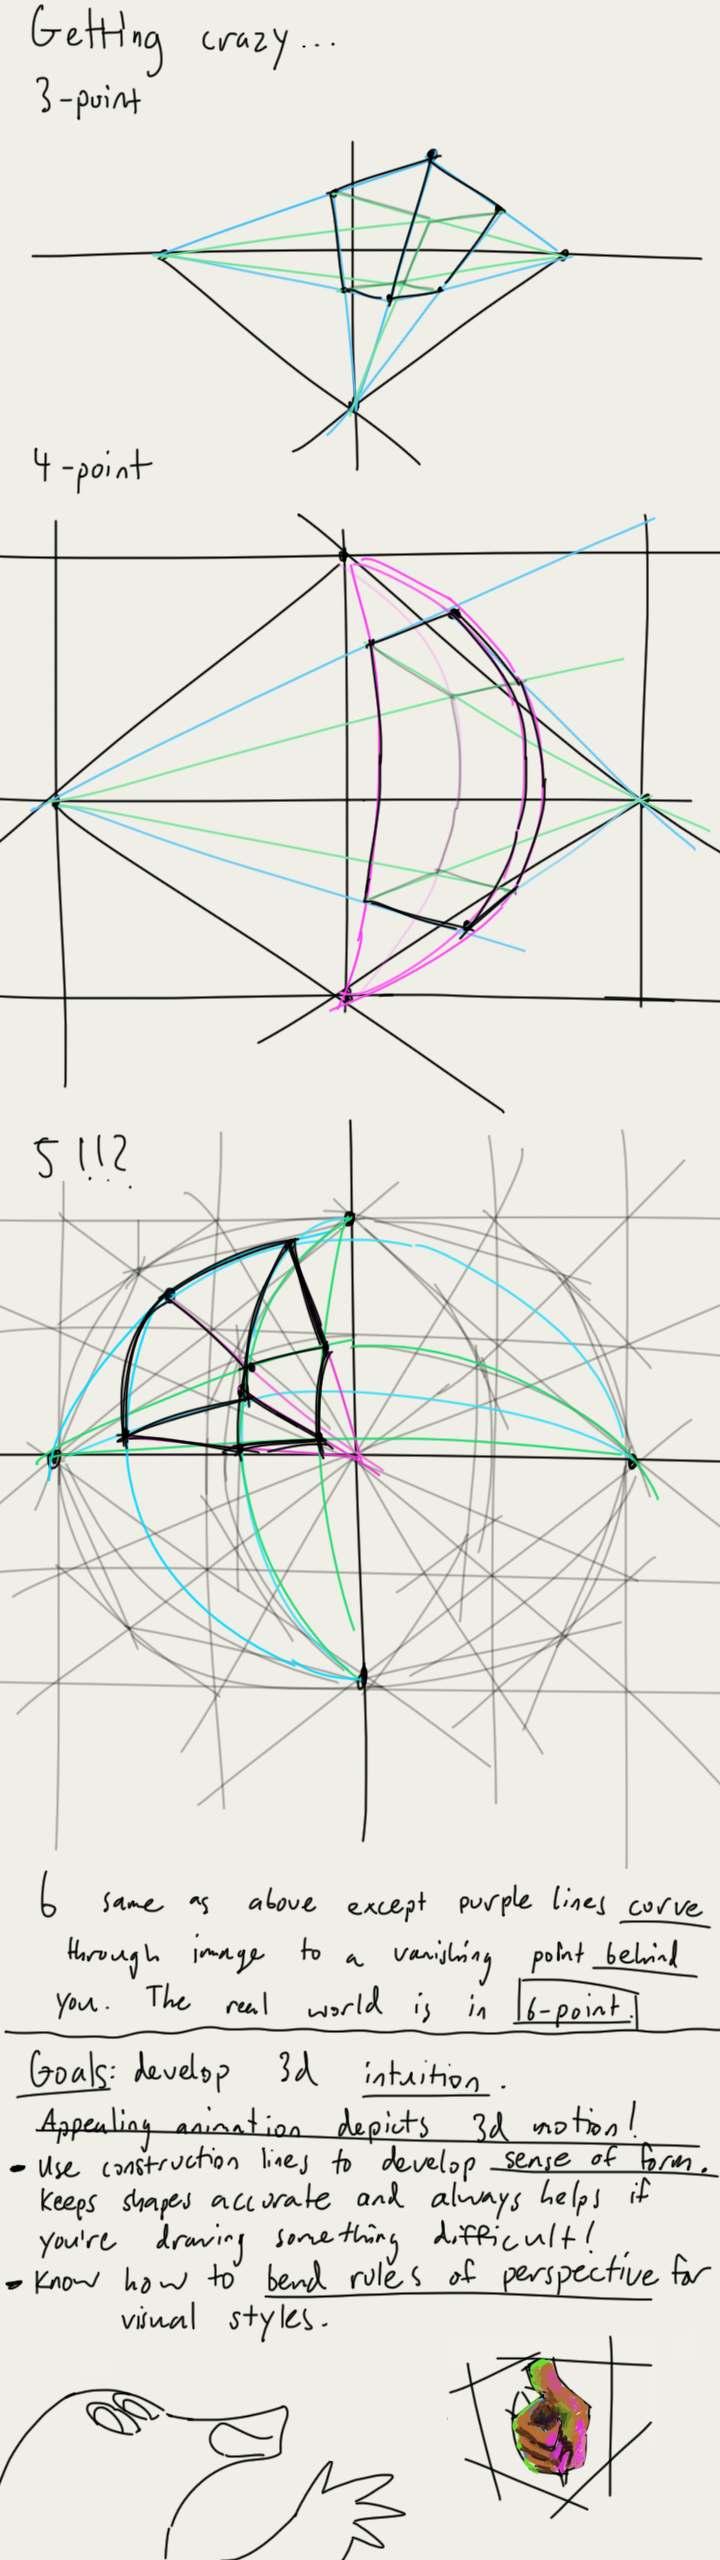 Getting crazy...
3-point
4-point
5!!?
6 same as above except purple lines curve
through image to a vanishing point behind
you. The real world is in 6-point.
Goals: develop 3d intuition.
Appealing animation depicts 3d motion!
- Use construction lines to develop sense of form.
Keeps shapes accurate and always helps if
you're drawing something difficult!
- Know how to bend rules of perspective for
visual styles.